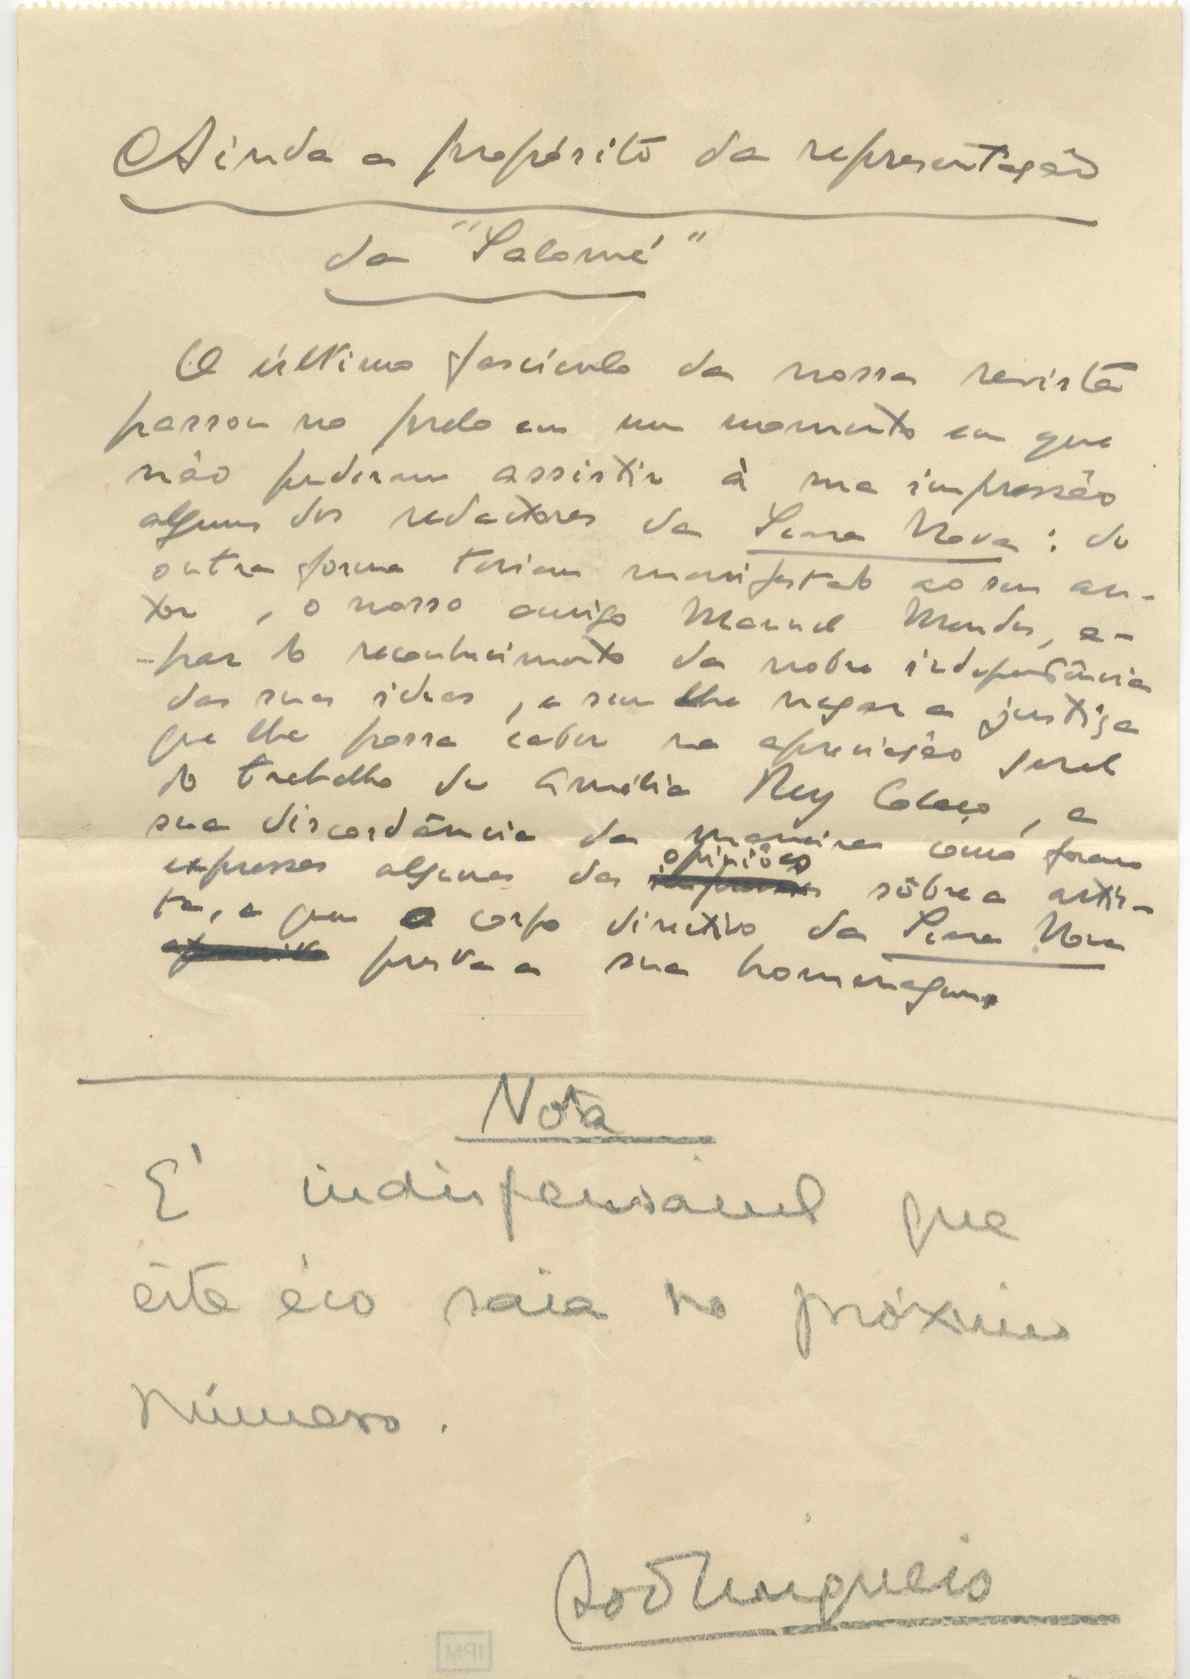 Ainda a propósito da representação
da "Salomé"
O último fascículo da nossa revista
passou no prelo em um momento em que
não puderam assistir à sua impressão
alguns dos redactores da Seara Nova: de
outra forma teriam manifestado ao seu au-
tor, o nosso amigo Manuel Mendes, a-
-par do reconhecimento da nobre independência
das suas ideas, e sem lhe negar a justiça
que lhe possa caber na apreciação geral
do trabalho de Amélia Rey Colaço, a
sua discordância da maneira como foram
expressas algumas das opiniões sôbre a artis-
ta, a quem o corpo directivo da Seara Nova
presta a sua homenagem.
Nota
É indispensavel que
êste éco saia no próximo
número.
Rod Miguéis